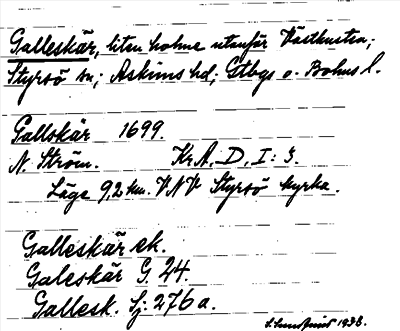 Galleskär, liten holme utanför Västkusten;
Styrsö sn; Askims hd; Gtbgs o. Bohus l.
Gallskär 1699.
N. Ström. Kr. A, D, I: 3.
Läge 9,2 km. VNV Styrsö kyrka.
Galleskär ek.
Galeskär G. 24.
Gallesk. Sj: 276 a.
1938.